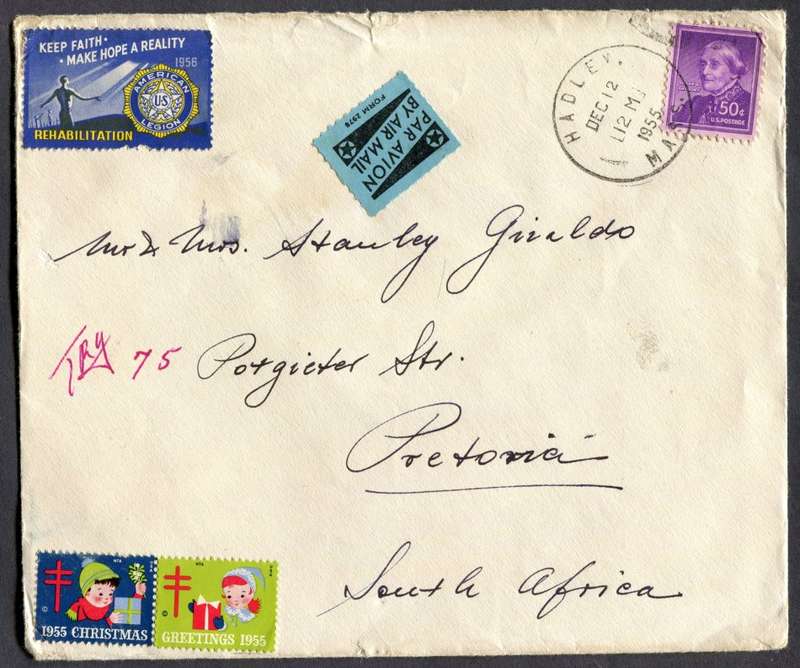 KEEP FAITH ·
· MAKE HOPE A REALITY
1956
AMERICAN
US
LEGION
REHABILITATION
PAR AVION
BY AIR MAIL
FORM 2978
HADLEY
DEC 12
12 M
1955
MA
50¢
U.S. POSTAGE
Mr & Mrs. Stanley Giraldo
75 Potgieter Str.
Pretoria
South Africa
NTA
USA
1955 CHRISTMAS
NTA
USA
GREETINGS 1955